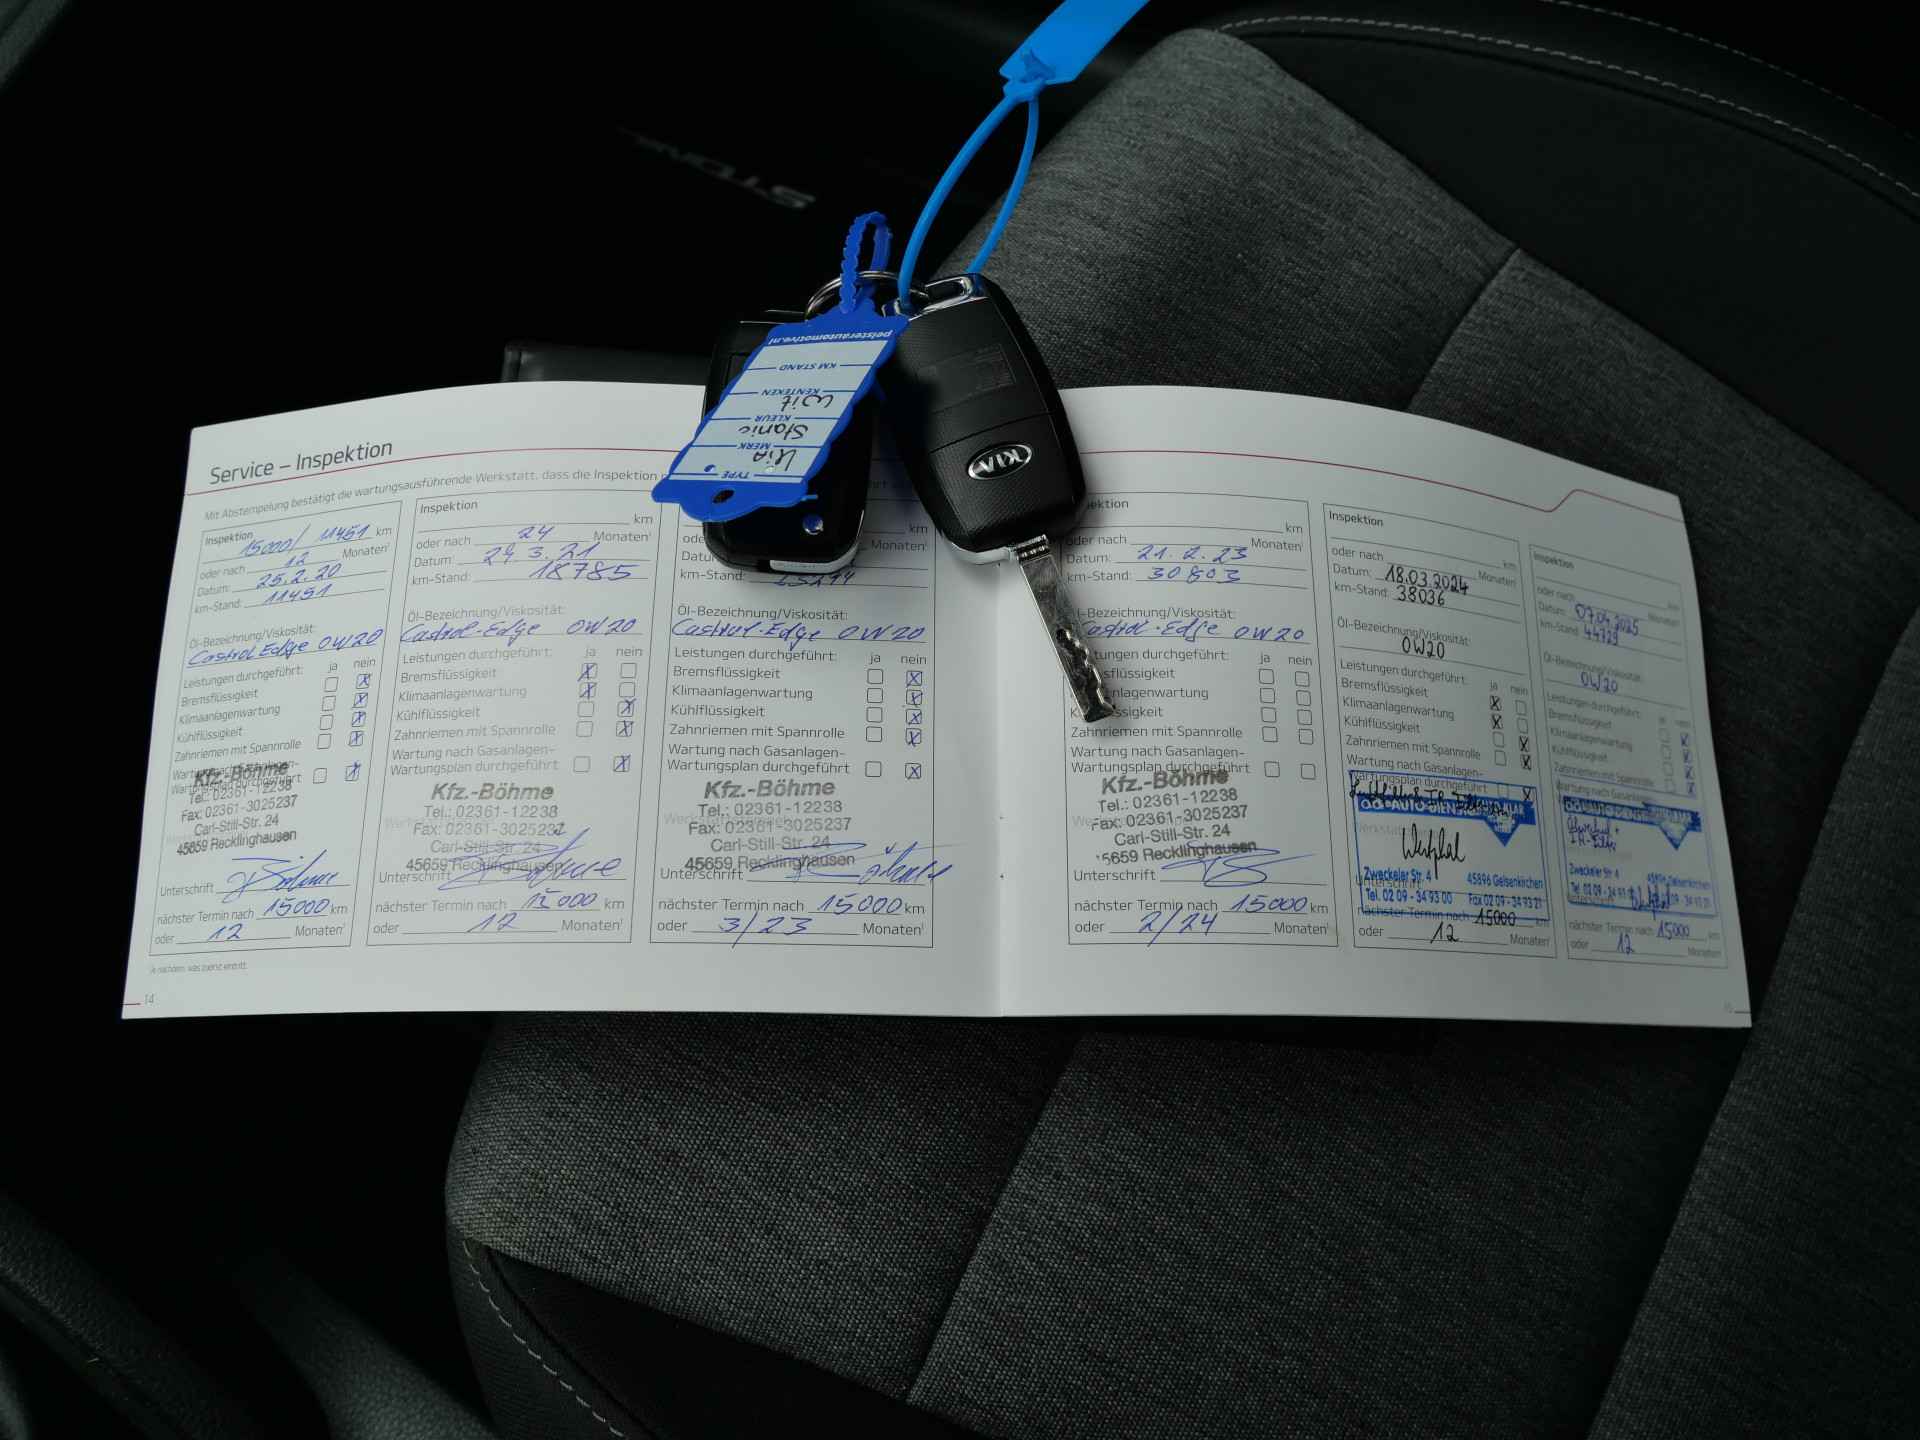 Service – Inspektion
Mit Abstempelung bestätigt die wartungsausführende Werkstatt, dass die Inspektion
Inspektion
15000/ 11451 km
oder nach 12 Monaten¹
Datum: 25.2.20
km-Stand: 11451
Öl-Bezeichnung/Viskosität:
Castrol Edge 0W20
Leistungen durchgeführt: ja nein
Bremsflüssigkeit X
Klimaanlagenwartung X
Kühlflüssigkeit X
Zahnriemen mit Spannrolle X
Wartung nach Gasanlagen-
Wartungsplan durchgeführt X
Kfz.-Böhme
Tel.: 02361-12238
Fax: 02361-3025237
Carl-Still-Str. 24
45659 Recklinghausen
Unterschrift
nächster Termin nach 15000 km
oder 12 Monaten¹
¹Je nachdem, was zuerst eintritt.
14
Inspektion
km
oder nach 24 Monaten¹
Datum: 24.3.21
km-Stand: 18785
Öl-Bezeichnung/Viskosität:
Castrol-Edge 0W20
Leistungen durchgeführt: ja nein
Bremsflüssigkeit X
Klimaanlagenwartung X
Kühlflüssigkeit X
Zahnriemen mit Spannrolle X
Wartung nach Gasanlagen-
Wartungsplan durchgeführt X
Kfz.-Böhme
Tel.: 02361-12238
Fax: 02361-3025237
Carl-Still-Str. 24
45659 Recklinghausen
Unterschrift
nächster Termin nach 15000 km
oder 12 Monaten¹
km
Monaten¹
km-Stand:
Öl-Bezeichnung/Viskosität:
Castrol-Edge 0W20
Leistungen durchgeführt: ja nein
Bremsflüssigkeit X
Klimaanlagenwartung X
Kühlflüssigkeit X
Zahnriemen mit Spannrolle X
Wartung nach Gasanlagen-
Wartungsplan durchgeführt X
Kfz.-Böhme
Tel.: 02361-12238
Fax: 02361-3025237
Carl-Still-Str. 24
45659 Recklinghausen
Unterschrift
nächster Termin nach 15000 km
oder 3/23 Monaten¹
pelsterautomotive.nl
KM STAND
KENTEKEN
Wit
KLEUR
Stonic
MERK
Kia
TYPE
KIA
km
oder nach Monaten¹
Datum: 21.2.23
km-Stand: 30803
Öl-Bezeichnung/Viskosität:
Castrol-Edge 0W20
Leistungen durchgeführt: ja nein
Bremsflüssigkeit
Klimaanlagenwartung
Kühlflüssigkeit
Zahnriemen mit Spannrolle
Wartung nach Gasanlagen-
Wartungsplan durchgeführt
Kfz.-Böhme
Tel.: 02361-12238
Fax: 02361-3025237
Carl-Still-Str. 24
45659 Recklinghausen
Unterschrift
nächster Termin nach 15000 km
oder 2/24 Monaten¹
Inspektion
km
oder nach Monaten
Datum: 18.03.2024
km-Stand: 38036
Öl-Bezeichnung/Viskosität:
0W20
Leistungen durchgeführt: ja nein
Bremsflüssigkeit X
Klimaanlagenwartung X
Kühlflüssigkeit X
Zahnriemen mit Spannrolle X
Wartung nach Gasanlagen-
Wartungsplan durchgeführt X
Westphal
Zweckeler Str. 4 45896 Gelsenkirchen
Tel. 02 09 - 34 93 00 Fax 02 09 - 34 93 21
Unterschrift
nächster Termin nach 15000 km
oder 12 Monaten¹
Inspektion
km
oder nach Monaten¹
Datum: 07.04.2025
km-Stand:
Öl-Bezeichnung/Viskosität:
0W20
Leistungen durchgeführt: ja nein
Bremsflüssigkeit
Klimaanlagenwartung
Kühlflüssigkeit
Zahnriemen mit Spannrolle
Wartung nach Gasanlagen-
Zweckeler Str. 4 45896 Gelsenkirchen
nächster Termin nach 15000 km
oder 12 Monaten¹